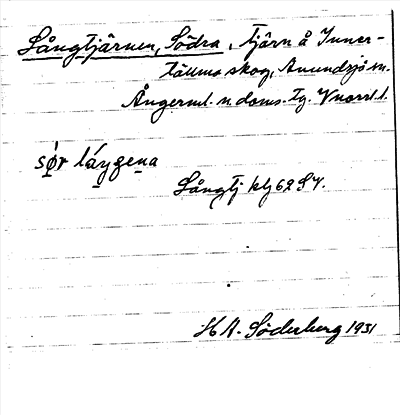 Långtjärnen, Södra, tjärn å Inner-
tällmo skog, Anundsjö sn.
Ångerml. n. doms. tg. Vnorrl. l.
sǿr láŋgena
Långtj kbl 62 SV.
H A. Söderberg 1931